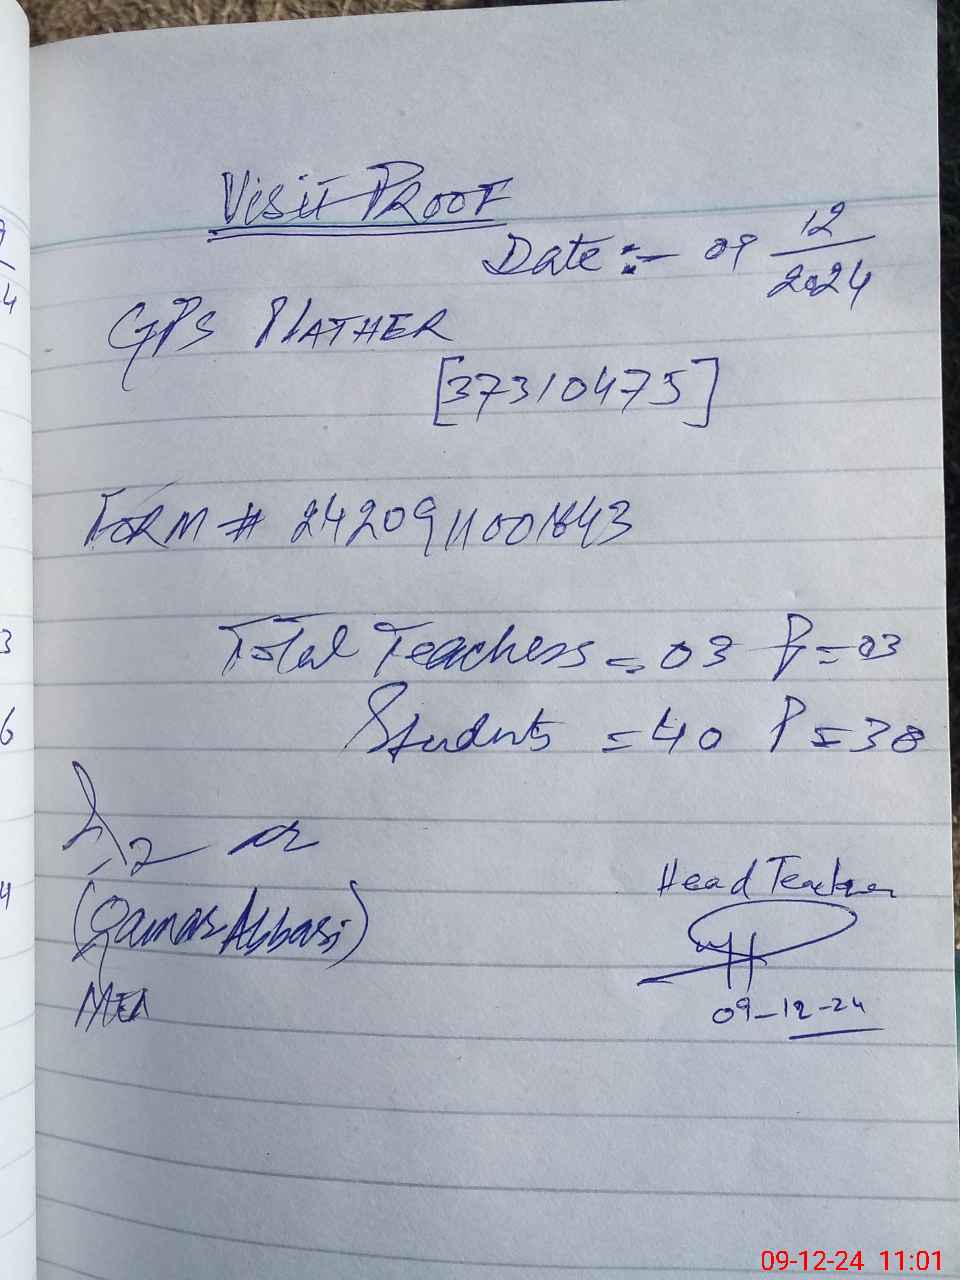 Visit PROOF
Date :- 09 12/2024
GPS PLATHER
[37310475]
FORM # 2420911001843
Total Teachers = 03 P = 03
Students = 40 P = 38
(Qamar Abbasi)
MEA
Head Teacher
09-12-24
09-12-24 11:01